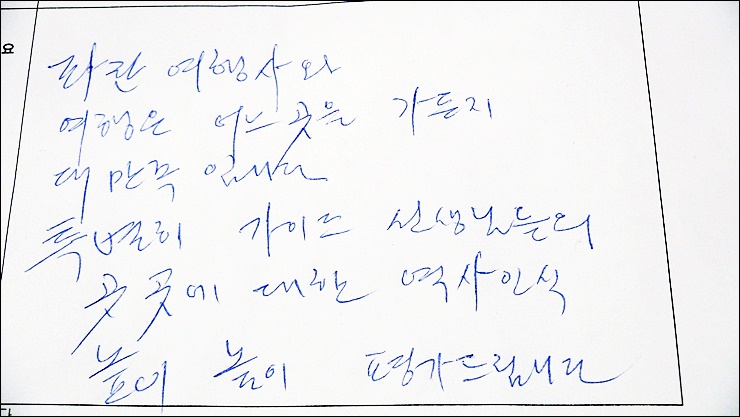 파란 여행사와
여행은 어느곳을 가든지
대 만족 입니다
특별히 가이드 선생님들의
곳곳에 대한 역사인식
높이 높이 평가드립니다